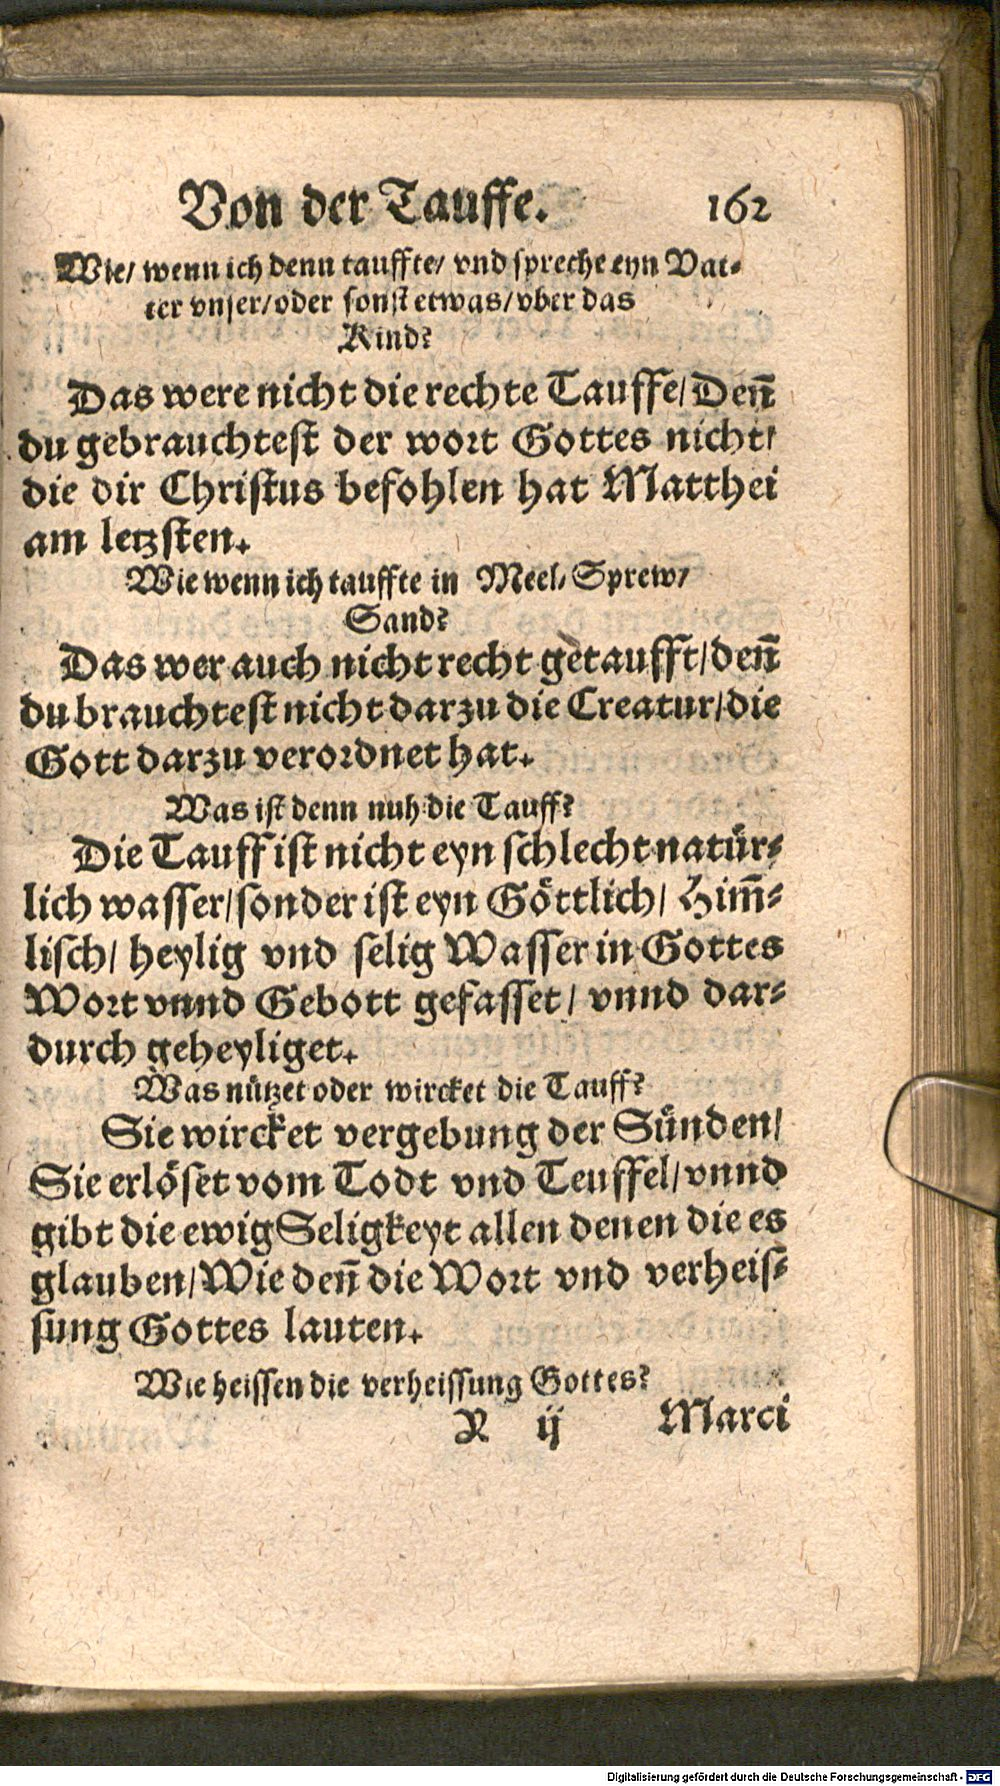 Von der Tauffe. 162
Wie/ wenn ich denn tauffte/ vnd spreche eyn Vat-
ter vnser/ oder sonst etwas/ vber das
Kind?
Das were nicht die rechte Tauffe/ Den̄
du gebrauchtest der wort Gottes nicht/
die dir Christus befohlen hat Matthei
am letzsten.
Wie wenn ich tauffte in Meel/ Sprew/
Sand?
Das wer auch nicht recht getaufft/ den̄
du brauchtest nicht darzu die Creatur/ die
Gott darzu verordnet hat.
Was ist denn nuh die Tauff?
Die Tauff ist nicht eyn schlecht natür-
lich wasser/ sonder ist eyn Göttlich/ Him̄-
lisch/ heylig vnd selig Wasser in Gottes
Wort vnnd Gebott gefasset/ vnnd dar-
durch geheyliget.
Was nützet oder wircket die Tauff?
Sie wircket vergebung der Sünden/
Sie erlöset vom Todt vnd Teuffel/ vnnd
gibt die ewig Seligkeyt allen denen die es
glauben/ Wie den̄ die Wort vnd verheis-
sung Gottes lauten.
Wie heissen die verheissung Gottes?
R ij Marci
Digitalisierung gefördert durch die Deutsche Forschungsgemeinschaft - DFG